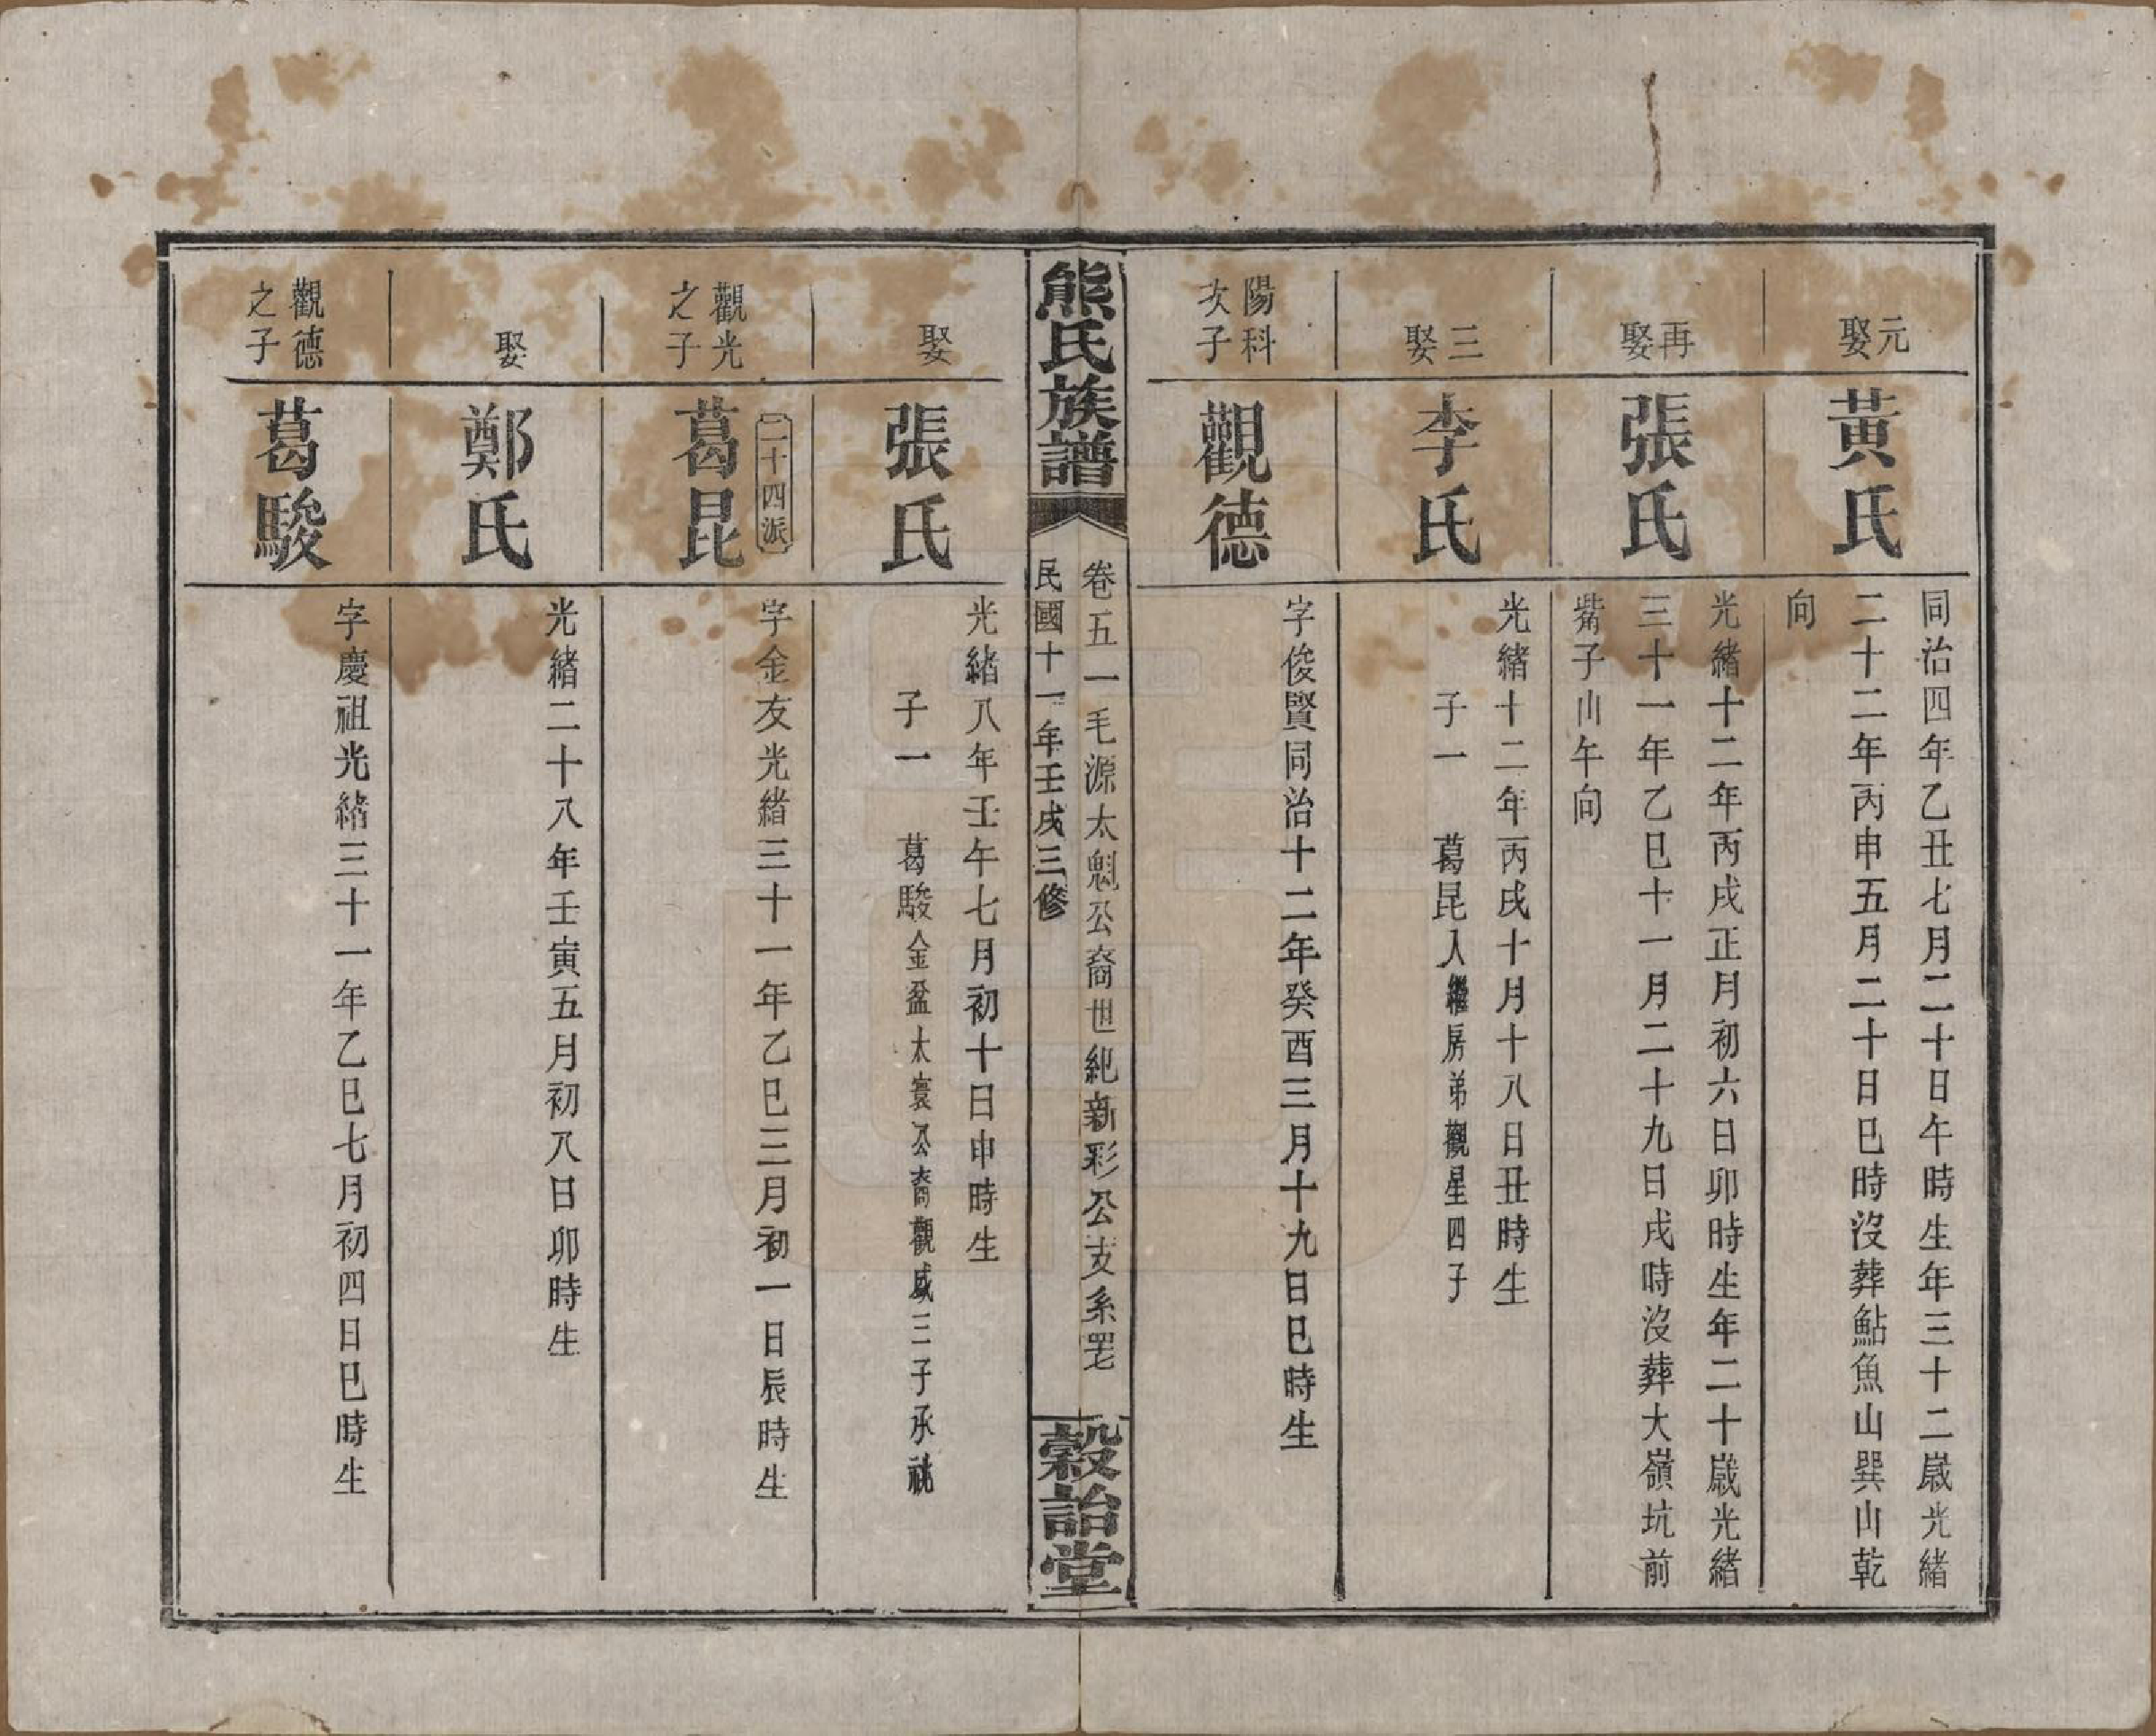 元娶
黃氏
同治四年乙丑七月二十日午時生年三十二歲光緒
二十二年丙申五月二十日巳時沒葬鮎魚山巽山乾
向
再娶
張氏
光緒十二年丙戌正月初六日卯時生年二十歲光緒
三十一年乙巳十一月二十九日戌時沒葬大嶺坑前
觜子山午向
三娶
李氏
光緒十二年丙戌十月十八日丑時生
子一 葛昆入繼房弟觀星四子
陽科
次子
觀德
字俊賢同治十二年癸酉三月十九日巳時生
熊氏族譜
卷五一毛源太魁公裔世紀新彩公支系
民國十一年壬戌三修
穀詒堂
娶
張氏
光緒八年壬午七月初十日申時生
子一 葛駿金盆太寰公裔觀威三子承祧
二十四派
觀光
之子
葛昆
字金友光緒三十一年乙巳三月初一日辰時生
娶
鄭氏
光緒二十八年壬寅五月初八日卯時生
觀德
之子
葛駿
字慶祖光緒三十一年乙巳七月初四日巳時生